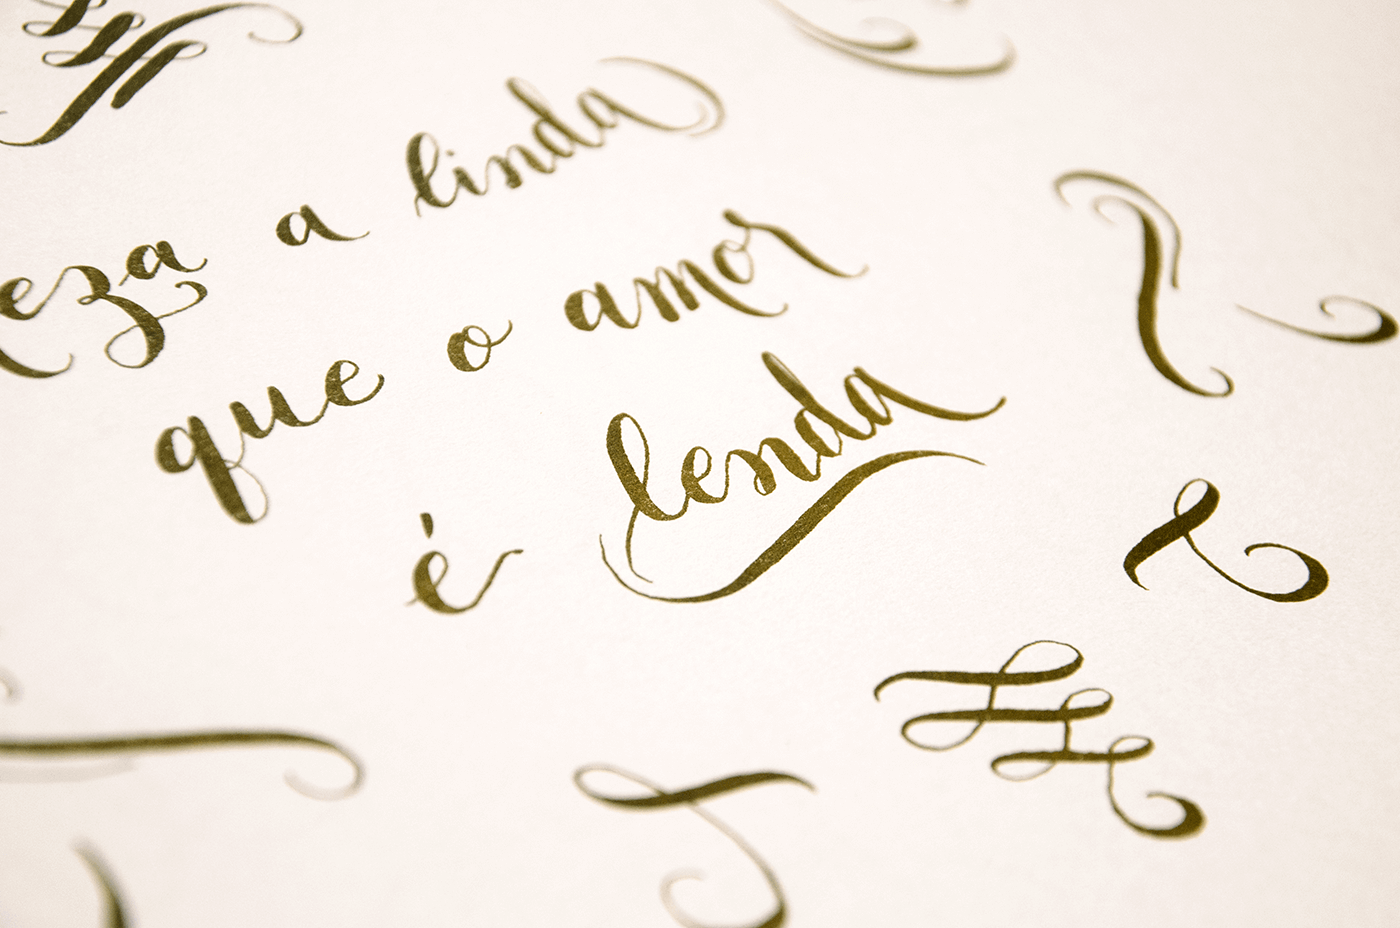 eza a linda
que o amor
é lenda